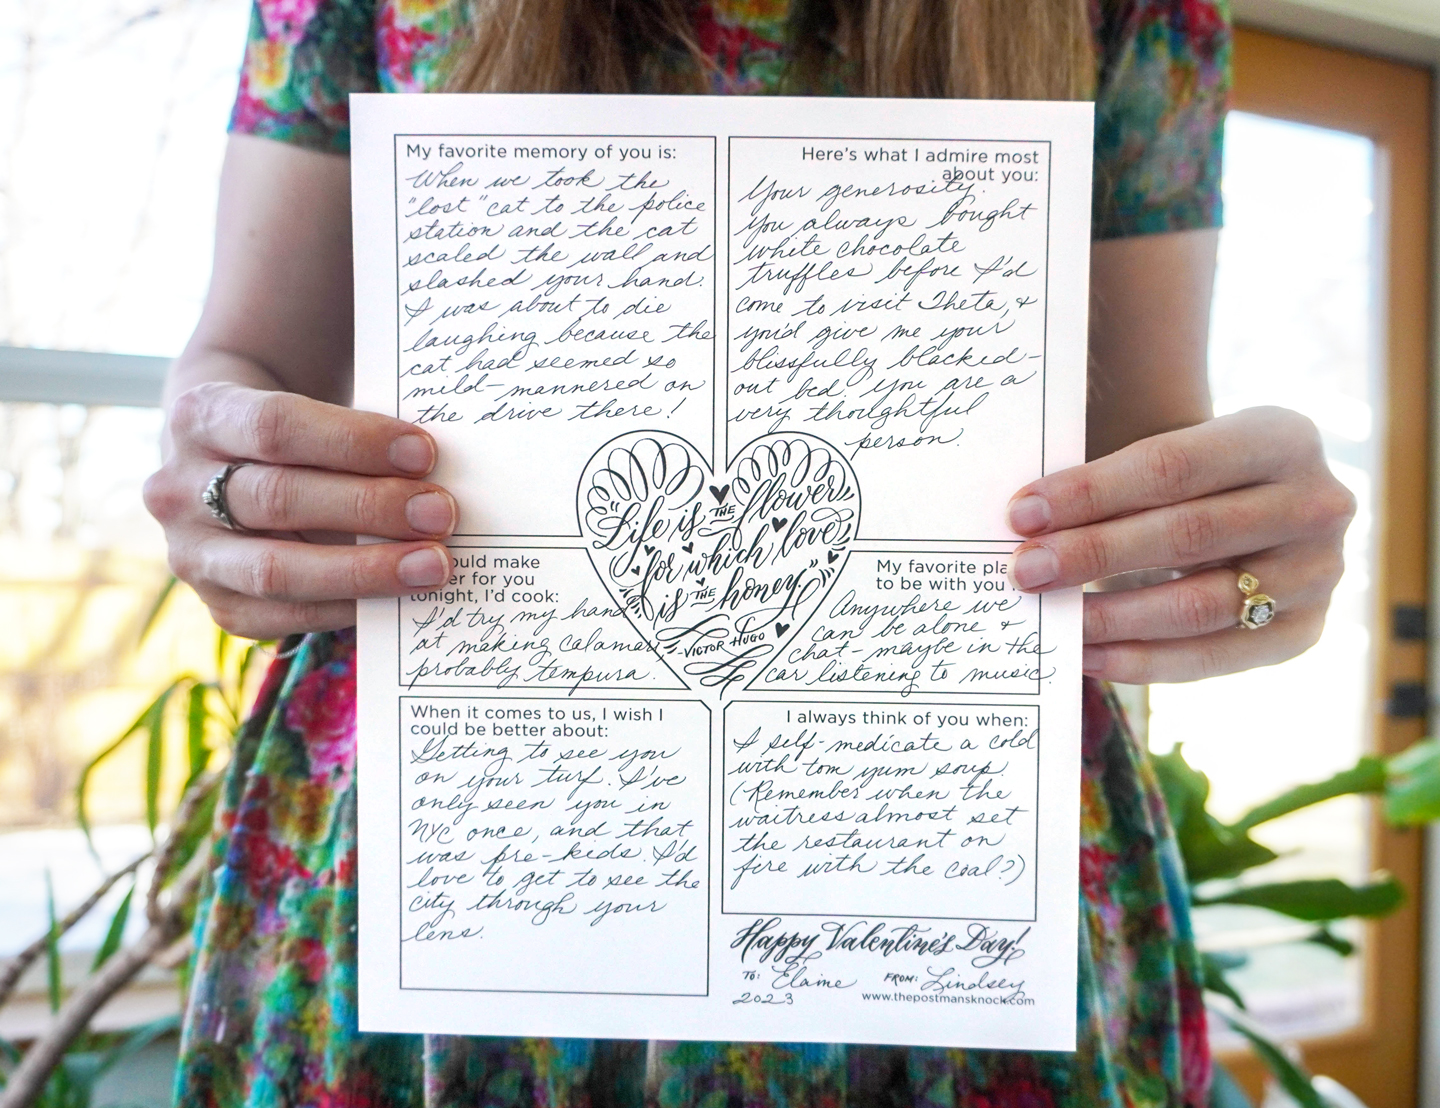 My favorite memory of you is:
When we took the
"lost" cat to the police
station and the cat
scaled the wall and
slashed your hand.
I was about to die
laughing because the
cat had seemed so
mild-mannered on
the drive there!
Here's what I admire most
about you:
Your generosity.
You always bought
white chocolate
truffles before I'd
come to visit Theta, &
you'd give me your
blissfully blacked-
out bed. You are a
very thoughtful
person.
"Life is THE flower
for which love
is THE honey."
-VICTOR HUGO
ould make
er for you
tonight, I'd cook:
I'd try my hand
at making calamari,
probably tempura.
My favorite pla
to be with you
Anywhere we
can be alone &
chat - maybe in the
car listening to music.
When it comes to us, I wish I
could be better about:
Getting to see you
on your turf. I've
only seen you in
NYC once, and that
was pre-kids. I'd
love to get to see the
city through your
lens.
I always think of you when:
I self-medicate a cold
with tom yum soup.
(Remember when the
waitress almost set
the restaurant on
fire with the coal?)
Happy Valentine's Day!
TO: Elaine FROM: Lindsey
2023 www.thepostmansknock.com